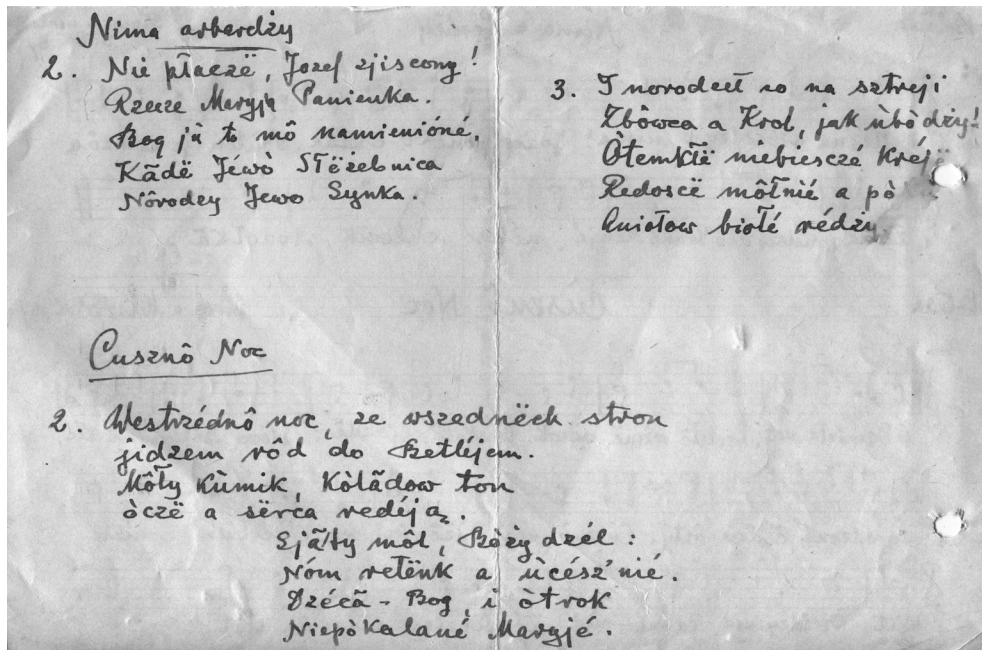 Nima arbardży
2. Nie płaczë, Jozef zjiscony!
Rzecze Maryja Panienka.
Bog jã to mô namienióné.
Kãdë Jéwò Słëżebnica
Nôrodzy Jewo Synka.
3. I norodzeł so na sztreji
Zbôwca a Krol, jak ùbòdży!
Òtemkłë niebiesczé kréj
Redoscë môłnié a pò
Aniołow biołé rédży.
Cusznô Noc
2. Westrzédnô noc, ze wszednëch stron
jidzem rôd do Betléjem.
Môły kùmik, Kòlãdow ton
òczë a sërca redéją.
Sjãty môl, Bòży dzél:
Nóm retënk a ùcész'nié.
Dzécã - Bog, i òtrok
Niepòkalané Maryjé.